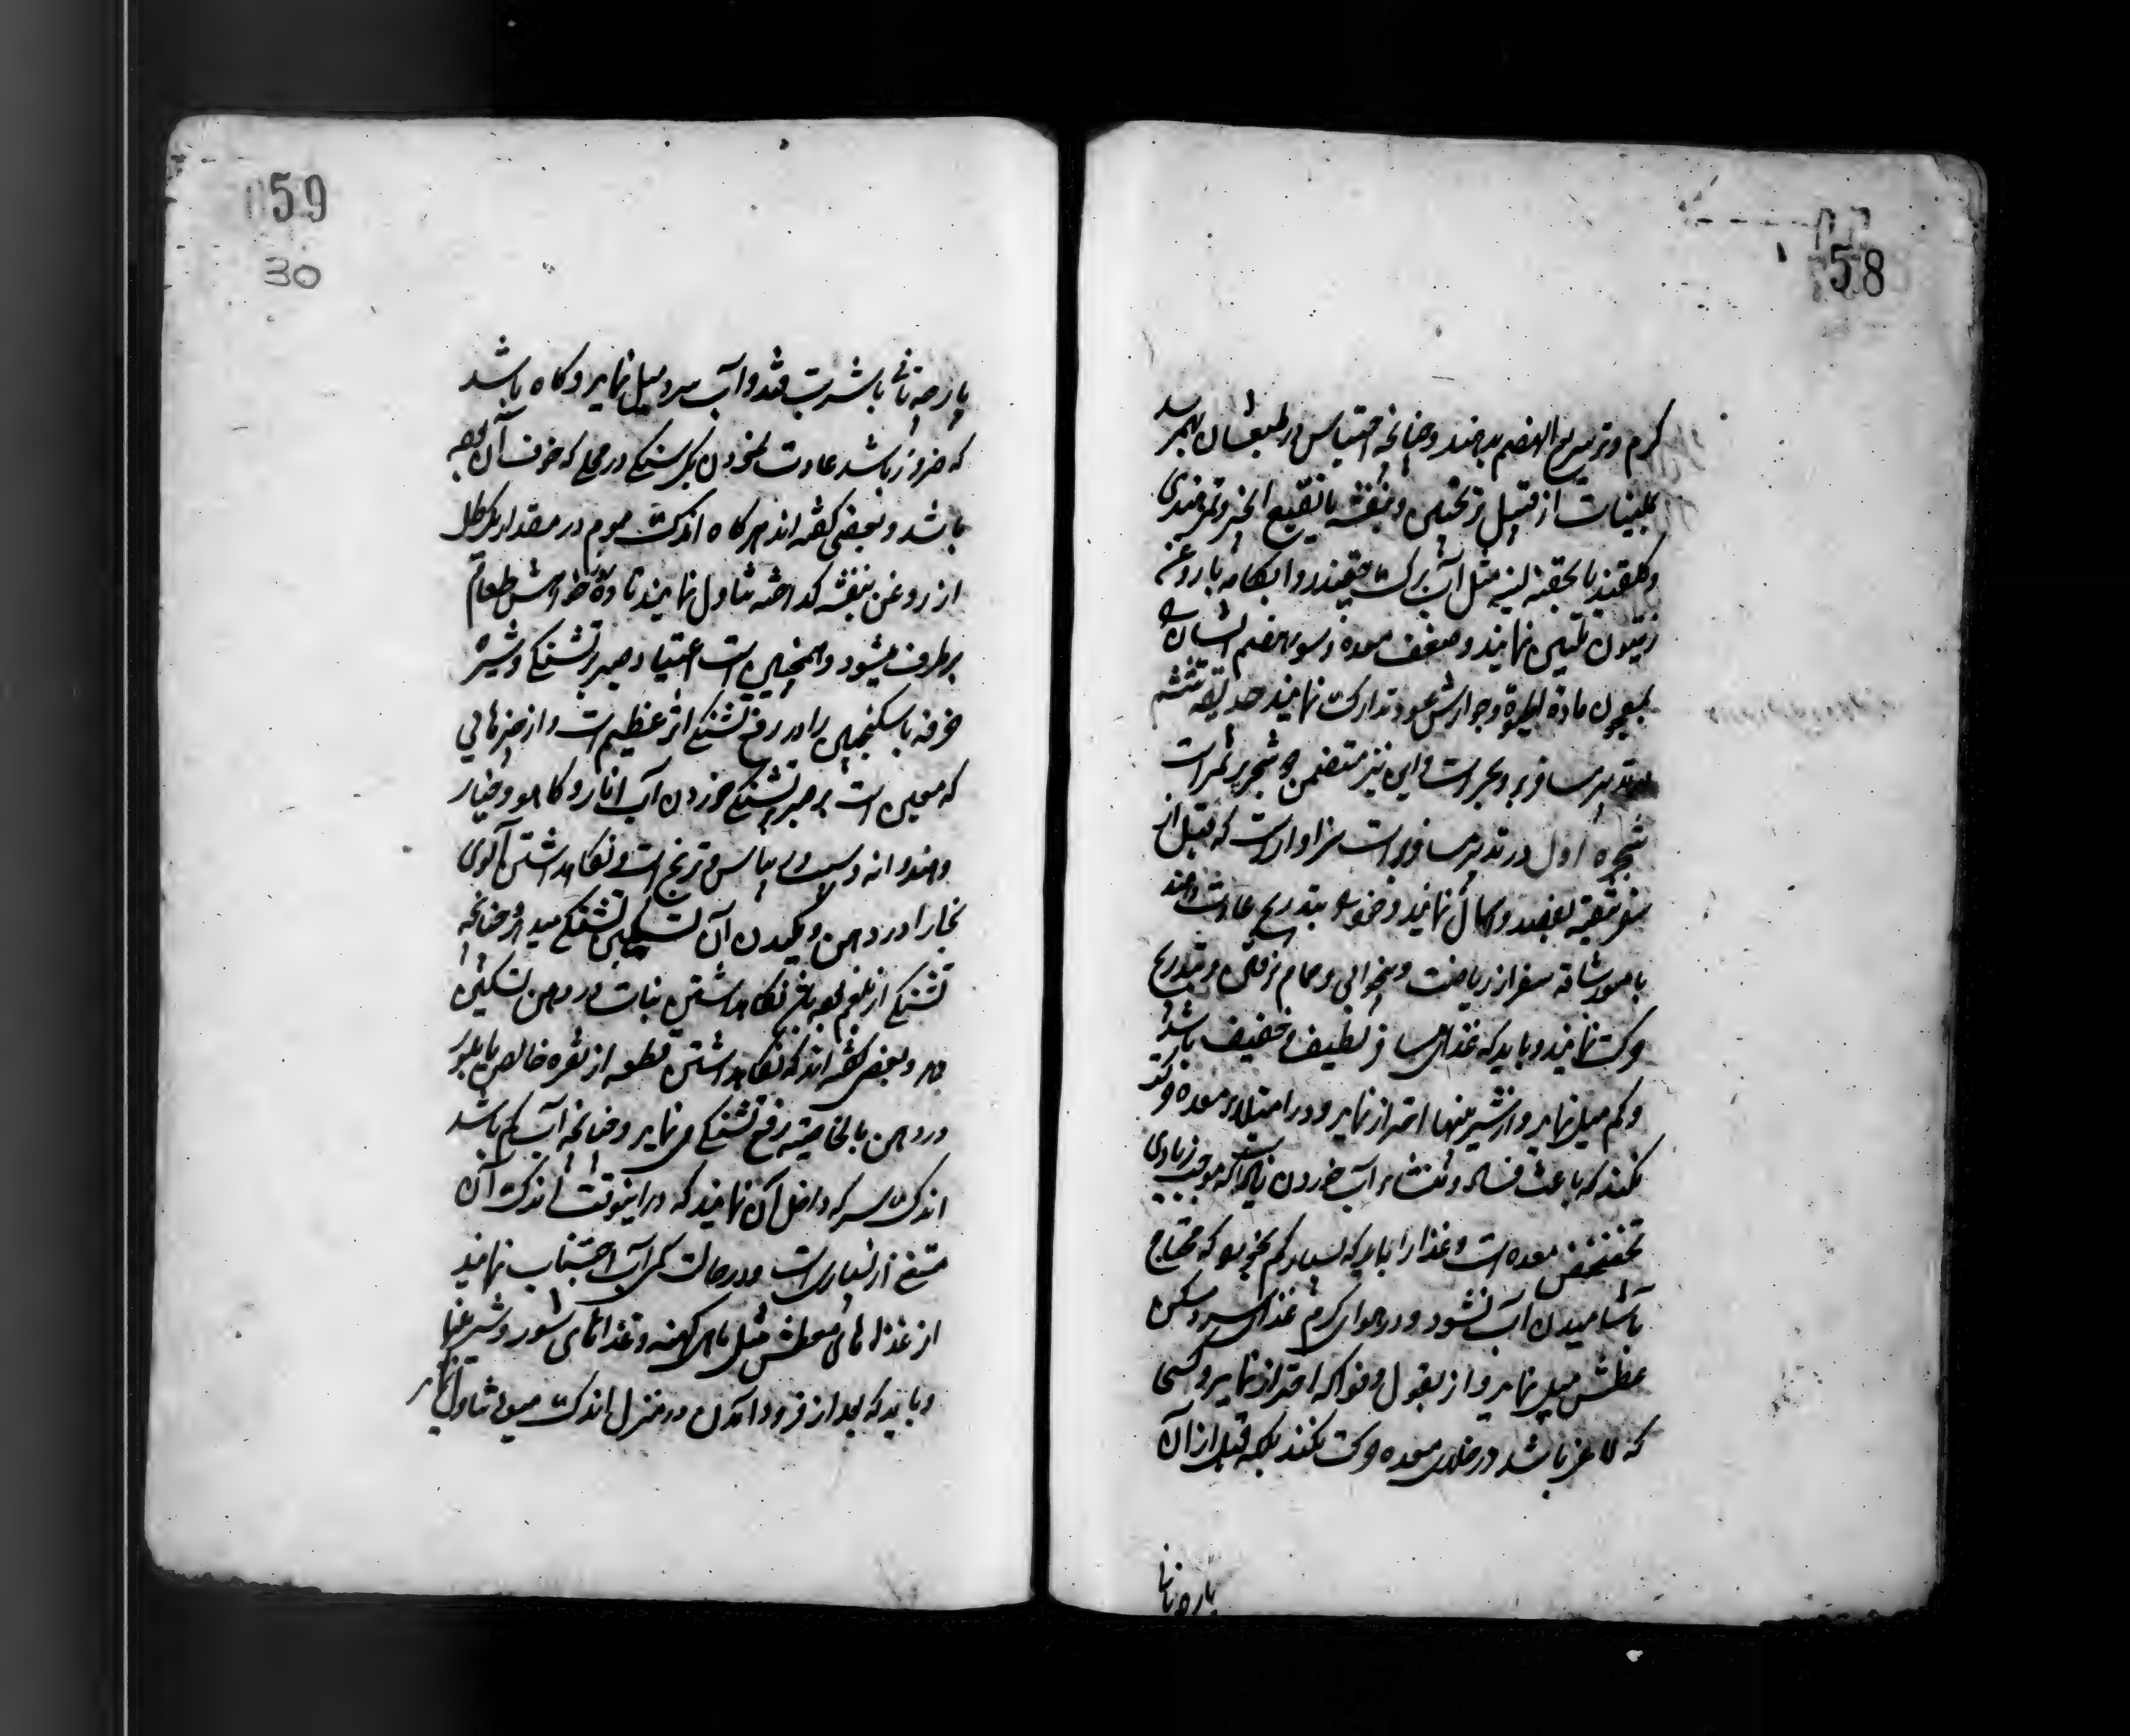 58
کرم و تر سریع الهضم بدهند و چنانچه احتباس در طبیعشان بهمرسد
بملینات از قبیل ترنجبین و بنفشه یا نقیع انجیر و تمر هندی
و کلقند یا بحقنه لینه مثل آب برک چقندر و ابکامه با روغن
زیتون تلیین نمایند و ضعف معده و سوء هضم ایشان را
بمعجون مادة الحیوة و جوارش عود تدارک نمایند حدیقه ششم
در تدبیر مسافر بر و بحر است و این نیز متضمن دو شجر پر ثمر است
شجره اول در تدبیر مسافر بر است سزاوار است که قبل از
سفر تنقیه بفصد و اسهال نمایند و خود را بتدریج عادت دهند
بامور شاقه سفر از ریاضت و بیخوابی و حمام نرفتن و بتدریج
حرکت نمایند و باید که غذای مسافر لطیف و خفیف باشد
و کم میل نماید و از شیرینیها احتراز نماید و در امتلاء معده حرکت
نکند که باعث فساد و منشاء آب خوردن زیاد است که موجب زیادی
تخضخض معده است و غذا را باید که بسیار کم بخورد که محتاج
باشامیدن آب نشود و در هوای کرم غذای سرد مسکن
عطش میل نماید و از بقول و فواکه احتراز نماید و کسی
که لاغر باشد در خلای معده حرکت نکند بلکه قبل از آن
پارچه نانی
59
30
پارچه نانی با شربت قند و آب سرد میل نماید و کاه باشد
که ضرور باشد عادت نخوردن بکرسنکی در محلی که خوف آن بوده
باشد و بعضی کفته اند هرکاه اندک موم در مقدار یک رطل
از روغن بنفشه کداخته تناول نمایند تا ده روز خواهش طعام
برطرف میشود و همچنین است اعتیاد صبر بر تشنکی و شیره
خرفه با سکنجبین را در رفع تشنکی اثر عظیم است و از چیزهائی
که معین است بر صبر تشنکی خوردن آب انار و کاهو و خیار
و هندوانه و سیب و ریباس و ترنج است و نکاهداشتن آلوی
بخارا در دهن و مکیدن آن تسکین تشنکی میدهد و چنانچه
تشنکی از بلغم بوده باشد نکاهداشتن نبات در دهن تسکین
دهد و بعضی کفته اند که نکاهداشتن قطعه از نقره خالص یا بلور
در دهن بالخاصیته رفع تشنکی می نماید و چنانچه آب کم باشد
اندک سرکه داخل آن نمایند که در اینوقت اندک آن
مستغنی از بسیار است و در حالت کمی آب اجتناب نمایند
از غذاهای معطش مثل ماهی کهنه و غذاهای شور و شیرینیها
و باید که بعد از فرود آمدن در منزل اندک میوه تناول نماید